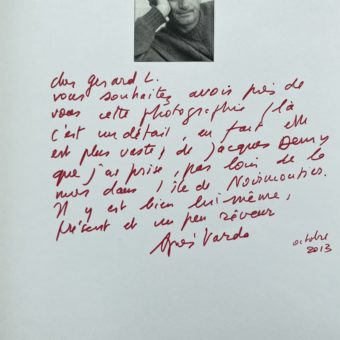 cher gerard L.
vous souhaitez avoir près de
vous cette photographie (là
c'est un détail, en fait elle
est plus vaste) de Jacques Demy
que j'ai prise, pas loin de la
mer dans l'île de Noirmoutier.
Il y est bien lui-même,
présent et un peu rêveur
Agnès Varda
octobre
2013